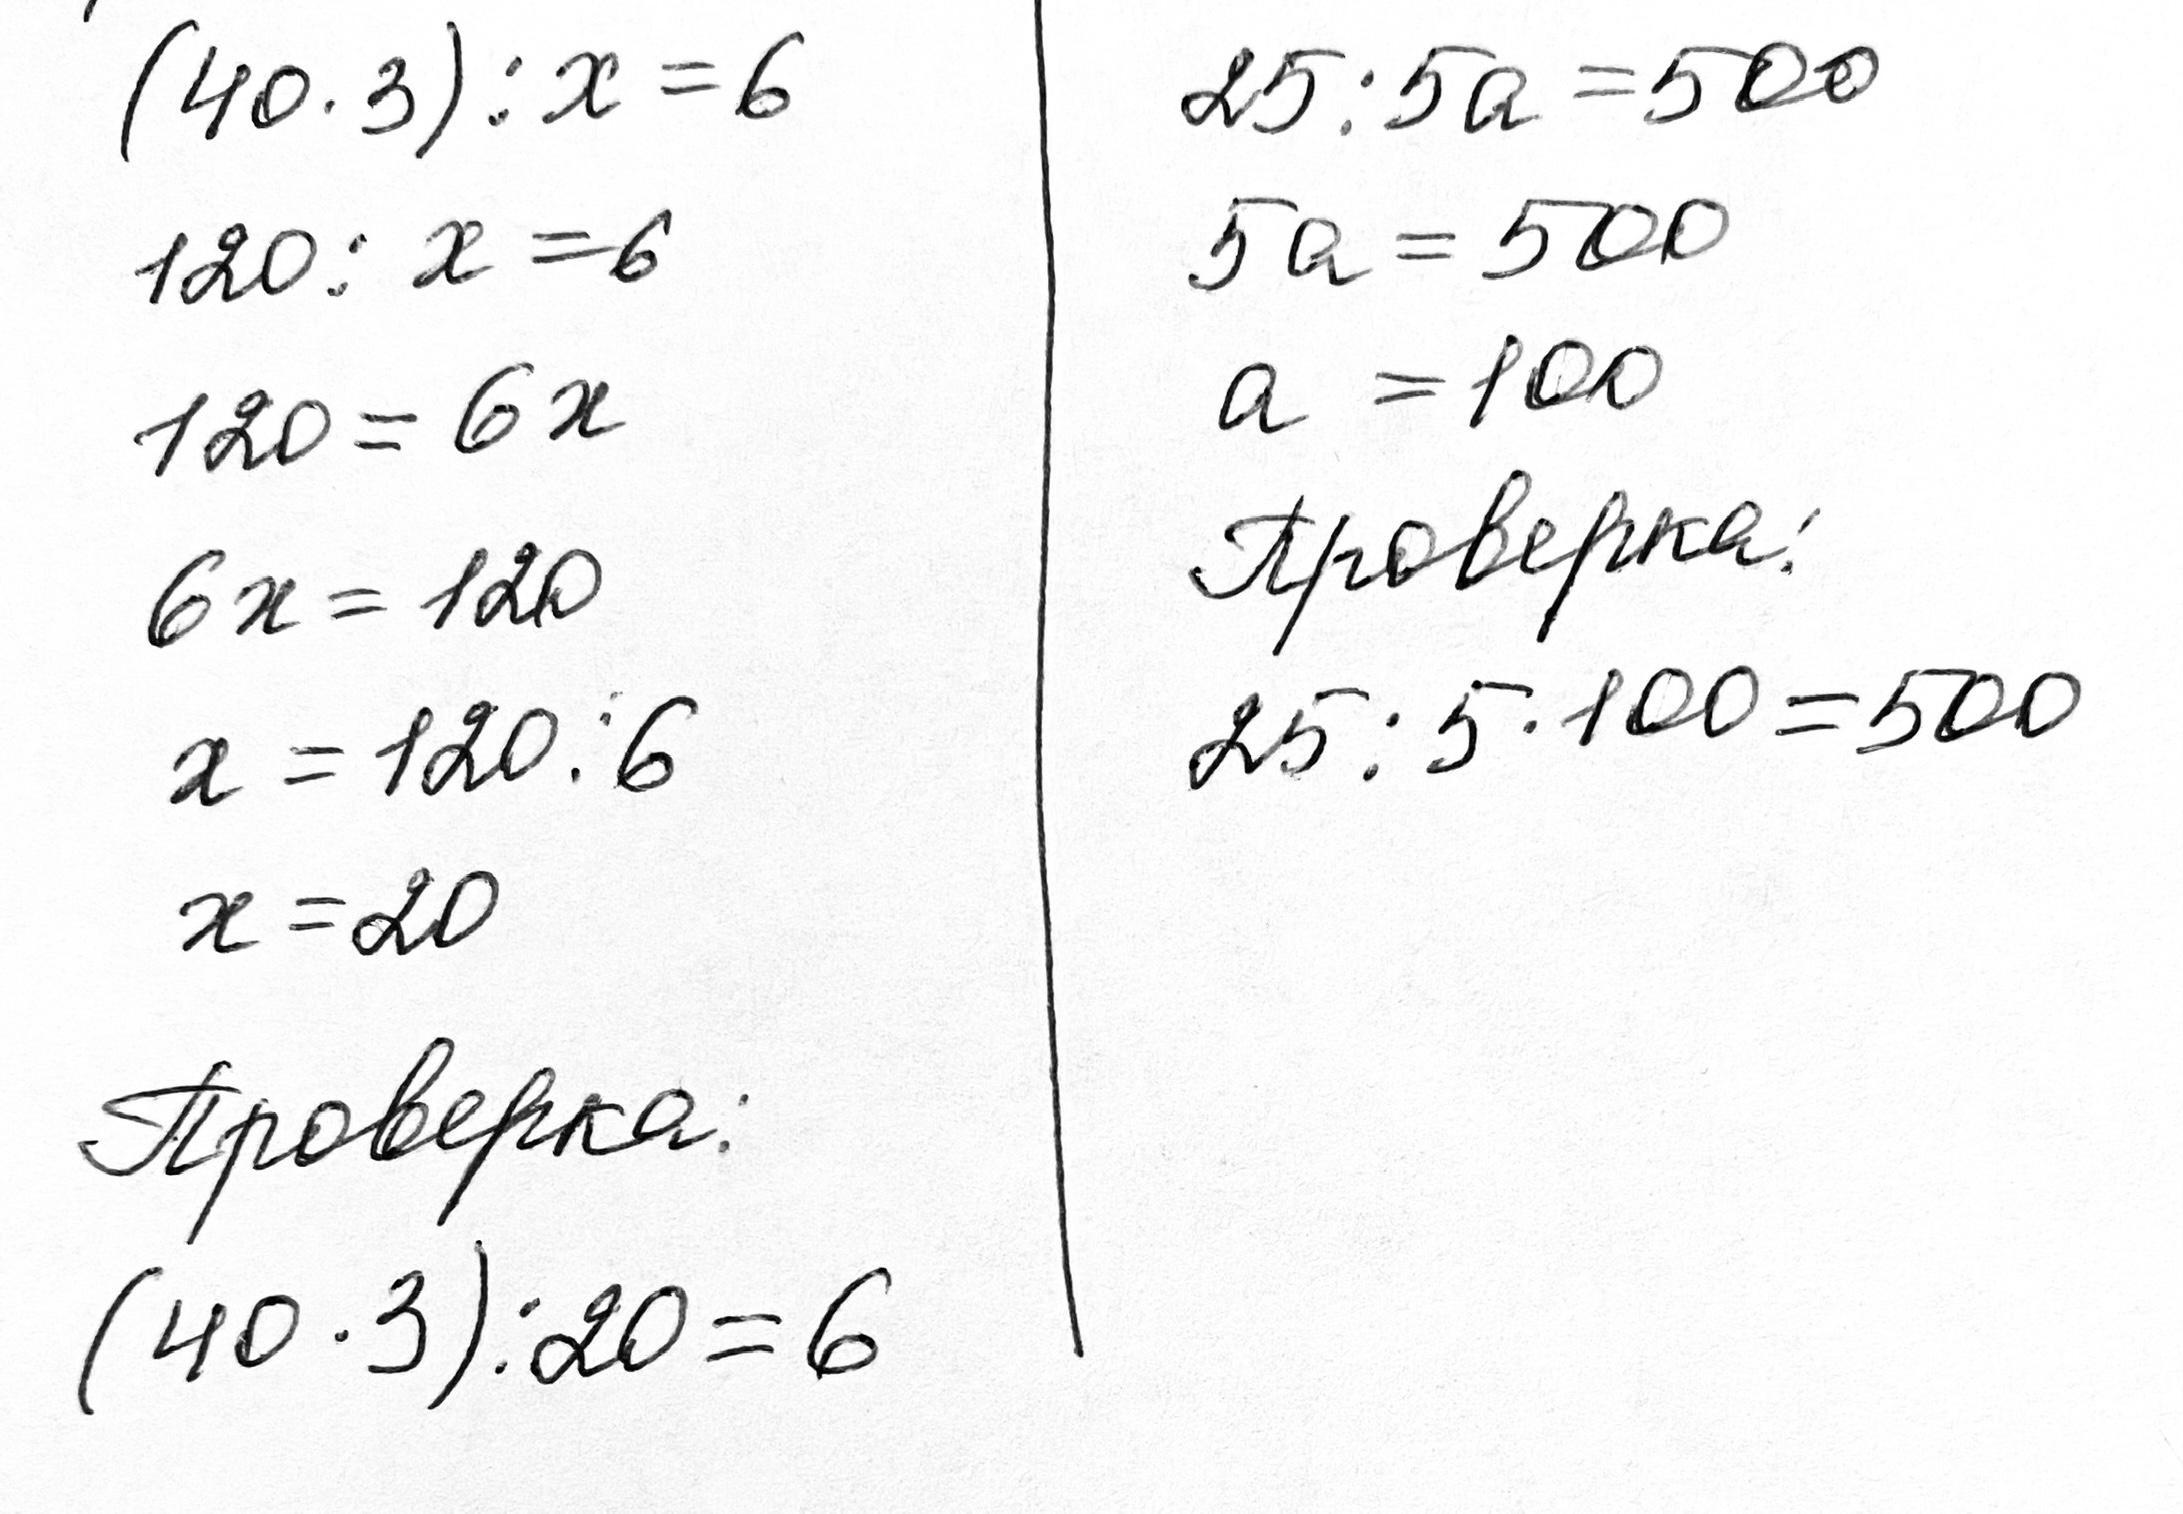 (40·3):x=6
120:x=6
120=6x
6x=120
x=120:6
x=20
Проверка:
(40·3):20=6
25:5a=500
5a=500
a=100
Проверка:
25:5·100=500